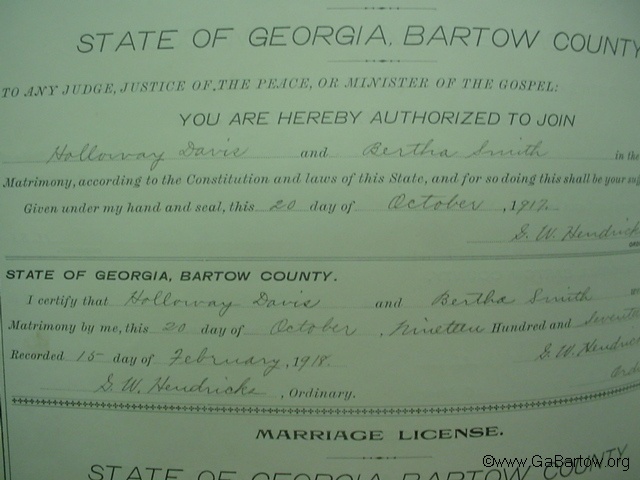 STATE OF GEORGIA, BARTOW COUNTY
TO ANY JUDGE, JUSTICE OF THE PEACE, OR MINISTER OF THE GOSPEL:
YOU ARE HEREBY AUTHORIZED TO JOIN
Holloway Davis and Bertha Smith in the
Matrimony, according to the Constitution and laws of this State, and for so doing this shall be your
Given under my hand and seal, this 20 day of October, 1917.
G. W. Hendrick
STATE OF GEORGIA, BARTOW COUNTY.
I certify that Holloway Davis and Bertha Smith
Matrimony by me, this 20 day of October, Nineteen Hundred and
Recorded 15 day of February, 1918. G. W. Hendric
G. W. Hendricks, Ordinary.
MARRIAGE LICENSE.
STATE OF GEORGIA, BARTOW COUNTY
©www.GaBartow.org